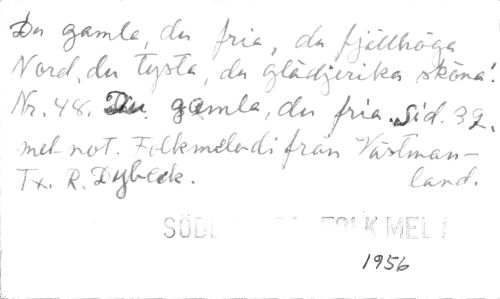 Du gamla, du fria, du fjällhöga
Nord, du tysta, du glädjerika sköna!
Nr. 48. Du gamla, du fria. Sid. 39.
mel-not. Folkmelodi från Västman-
Tx. R. Dybeck. land.
FOLK MEL
1956